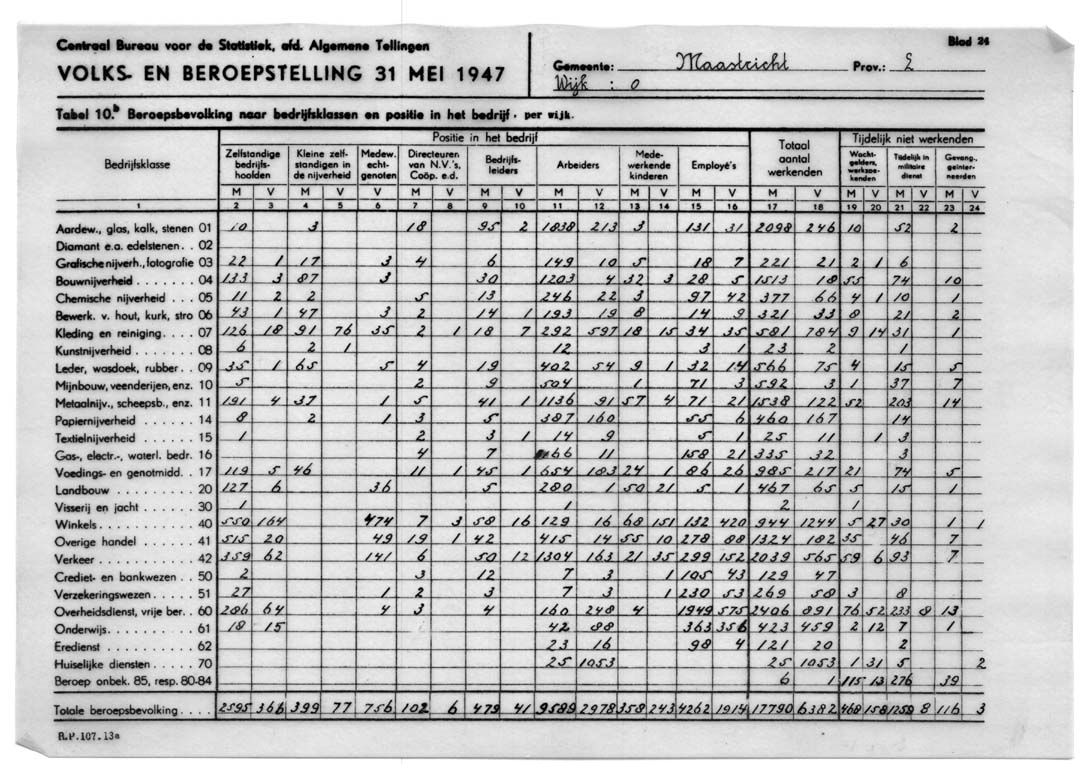 Centraal Bureau voor de Statistiek, afd. Algemene Tellingen
Blad 24
VOLKS- EN BEROEPSTELLING 31 MEI 1947
Gemeente: Maastricht Prov.: L
Wijk : 0
Tabel 10.b Beroepsbevolking naar bedrijfsklassen en positie in het bedrijf, per wijk.
Bedrijfsklasse
Positie in het bedrijf
Zelfstandige bedrijfs-hoofden
Kleine zelf-standigen in de nijverheid
Medew. echt-genoten
Directeuren van N.V.'s, Coöp. e.d.
Bedrijfs-leiders
Arbeiders
Mede-werkende kinderen
Employé's
Totaal aantal werkenden
Tijdelijk niet werkenden
Wacht-gelders, werkzoe-kenden
Tijdelijk in militaire dienst
Gevang., geïnter-neerden
M V M V V M V M V M V M V M V M V M V M V M V
1 2 3 4 5 6 7 8 9 10 11 12 13 14 15 16 17 18 19 20 21 22 23 24
Aardew., glas, kalk, stenen 01 10 3 18 95 2 1838 213 3 131 31 2098 246 10 52 2
Diamant e.a. edelstenen . . 02
Grafische nijverh., fotografie 03 22 1 17 3 4 6 149 10 5 18 7 221 21 2 1 6
Bouwnijverheid . . . . . . 04 133 3 87 3 30 1203 4 32 3 28 5 1513 18 55 74 10
Chemische nijverheid . . . 05 11 2 2 5 13 246 22 3 97 42 377 66 4 1 10 1
Bewerk. v. hout, kurk, stro 06 43 1 47 3 2 14 1 193 19 8 14 9 321 33 8 21 2
Kleding en reiniging . . . . 07 126 18 91 76 35 2 1 18 7 292 597 18 15 34 35 581 784 9 14 31 1
Kunstnijverheid . . . . . . . 08 6 2 1 12 3 1 23 2 1
Leder, wasdoek, rubber . . 09 35 1 65 5 4 19 402 54 9 1 32 14 566 75 4 15 5
Mijnbouw, veenderijen, enz. 10 5 2 9 504 1 71 3 592 3 1 37 7
Metaalnijv., scheepsb., enz. 11 191 4 37 1 5 41 1 1136 91 57 4 71 21 1538 122 52 203 14
Papiernijverheid . . . . . . 14 8 2 1 3 5 387 160 55 6 460 167 14
Textielnijverheid . . . . . . 15 1 2 3 1 14 9 5 1 25 11 1 3
Gas-, electr.-, waterl. bedr. 16 4 7 166 11 158 21 335 32
Voedings- en genotmidd. . 17 119 5 46 11 1 45 1 654 183 24 1 86 26 985 217 21 74 5
Landbouw . . . . . . . . . 20 127 6 36 5 280 1 50 21 5 1 467 65 5 15 1
Visserij en jacht . . . . . . 30 1 1 2 1
Winkels . . . . . . . . . . . 40 550 164 474 7 3 58 16 129 16 68 151 132 420 944 1244 5 27 30 1 1
Overige handel . . . . . . . 41 515 20 49 19 1 42 415 14 55 10 278 88 1324 182 35 46 7
Verkeer . . . . . . . . . . . 42 359 62 141 6 50 12 1304 163 21 35 299 152 2039 565 59 6 93 7
Crediet- en bankwezen . . 50 2 3 12 7 3 1 105 43 129 47
Verzekeringswezen . . . . . 51 27 1 2 3 7 3 1 230 53 269 58 3 8
Overheidsdienst, vrije ber. . 60 286 64 4 3 4 160 248 4 1949 575 2406 891 76 52 233 8 13
Onderwijs . . . . . . . . . . 61 18 15 42 88 363 356 423 459 2 12 7 1
Eredienst . . . . . . . . . . 62 23 16 98 4 121 20 2
Huiselijke diensten . . . . . 70 25 1053 25 1053 1 31 5 2
Beroep onbek. 85, resp. 80-84 6 1 115 13 276 39
Totale beroepsbevolking . . . . 2595 366 399 77 756 102 6 479 41 9589 2978 358 243 4262 1914 17790 6382 468 158 1259 8 116 3
R.P.107.13a